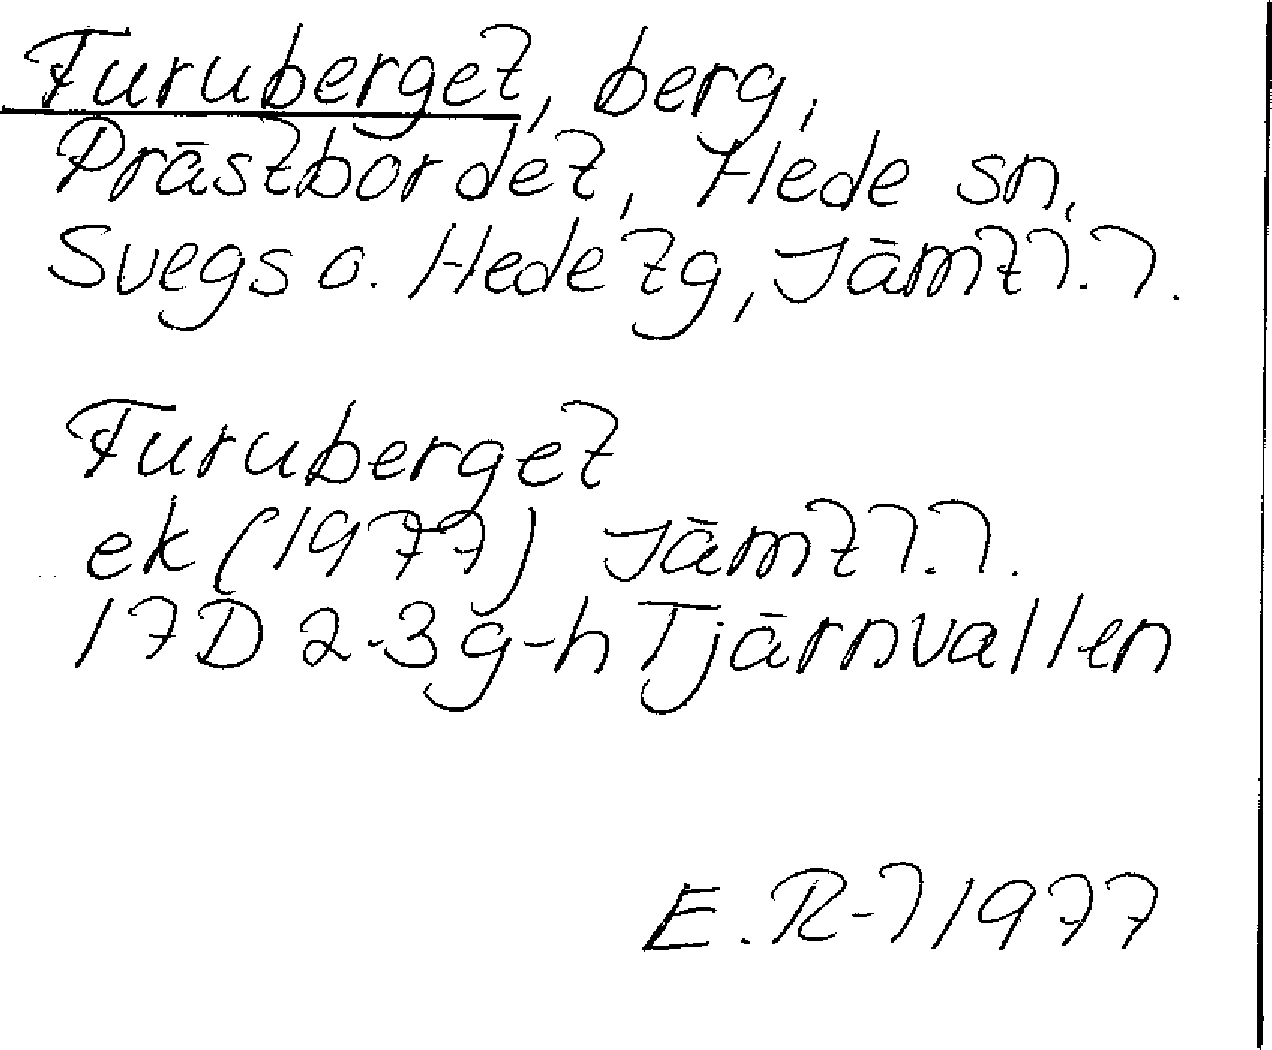 Furuberget, berg,
Prästbordet, Hede sn,
Svegs o. Hede tg, Jämtl.l.
Furuberget
ek (1977) Jämtl.l.
17D 2-3g-h Tjärnvallen
E. R-l 1977